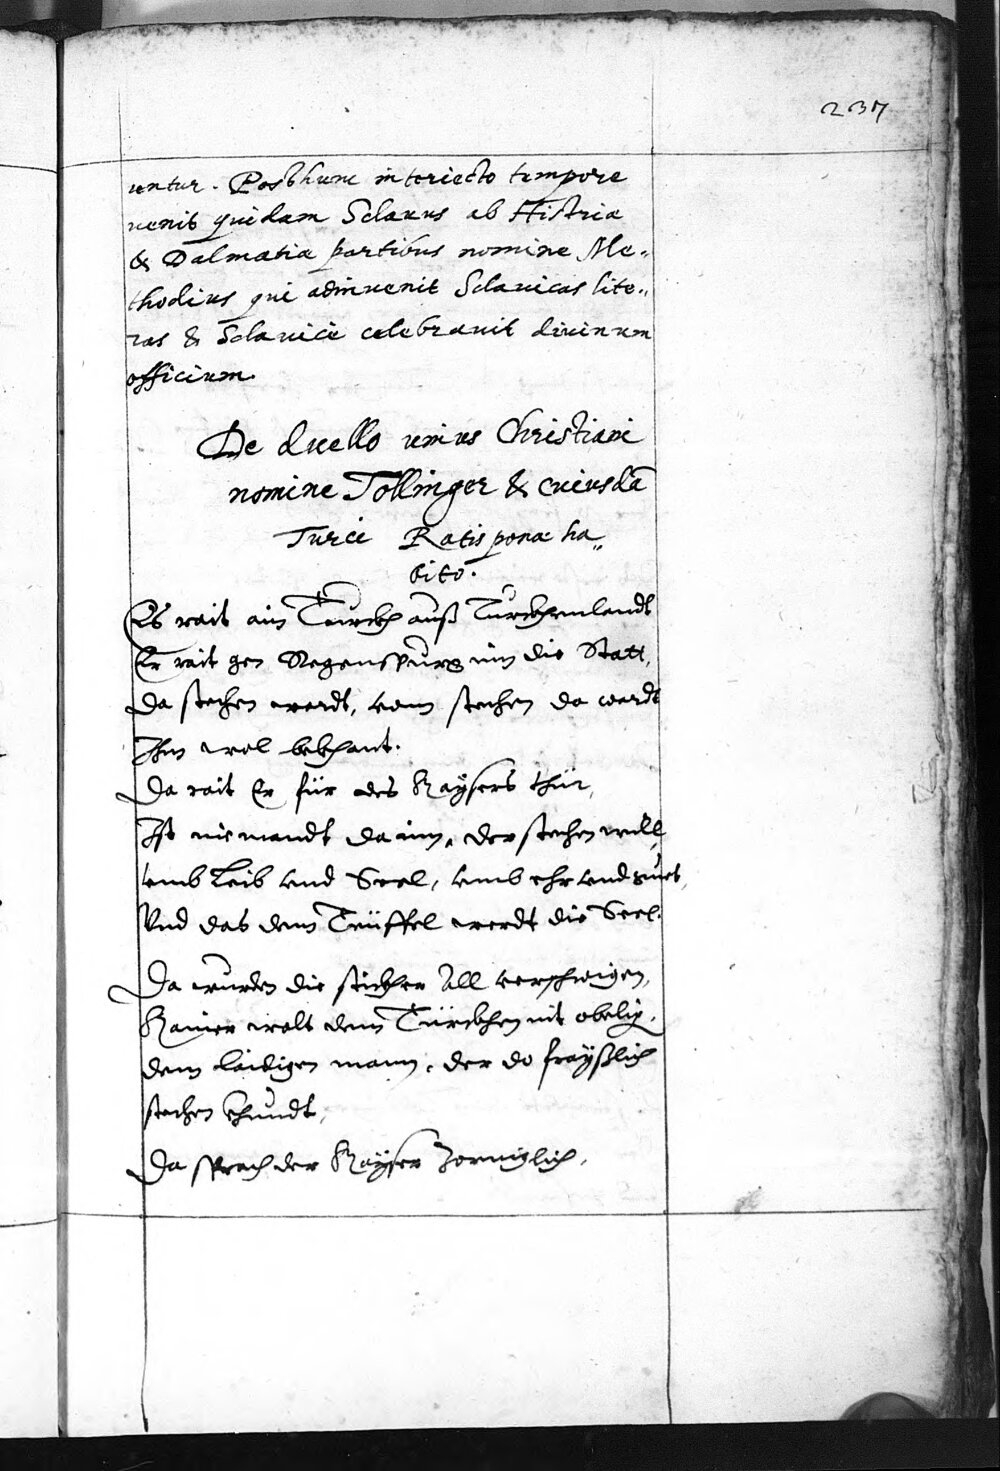 237
untur. Post hunc interiecto tempore
uenit quidam Sclauus ab Histria
& Dalmatia partibus nomine Me„
thodius qui adinuenit Sclauicas lite„
ras & Sclauicè celebrauit diuinum
officium.
De duello unius Christiani
nomine Tollinger & cuiusdā
Turci Ratisponæ ha„
bito.
Es rait ain Türckh auß Türckhenlandt
Er rait gen Regenspurg inn die Statt,
da stechen wardt, vom stechen da wardt
Ihm wol bekhant.
Da rait Er für des Kaysers thür,
Ist niemandt da inn, der stechen well
umb Leib und Seel, umb ehr und guet,
Vnd das dem Teüffel werdt die Seel.
Da wurden die stecher All verschwigen,
Kainer wolt dem Türckhen nit obelig.
dem laidigen mann, der do frayßlich
stechen khundt,
Da sprach der Kayser Zorniglich,